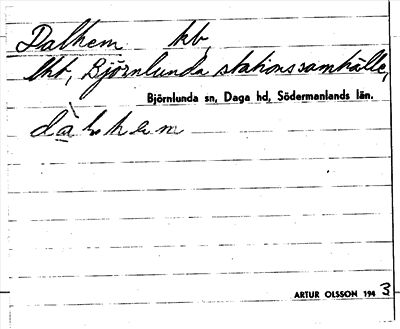 Dalhem hb,
lht, Björnlunda stationssamhälle,
Björnlunda sn, Daga hd, Södermanlands län.
ARTUR OLSSON 1943